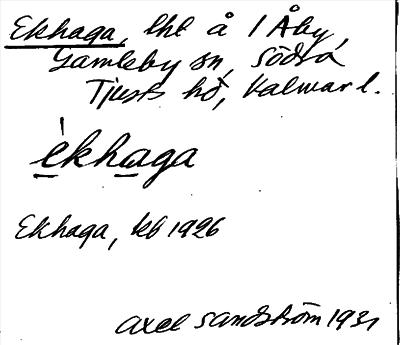 Ekhaga, lht å 1 Åby,
Gamleby sn, Södra
Tjusts hd, Kalmar l.
èkhaga
Ekhaga, kb 1926
Axel Sandström 1931